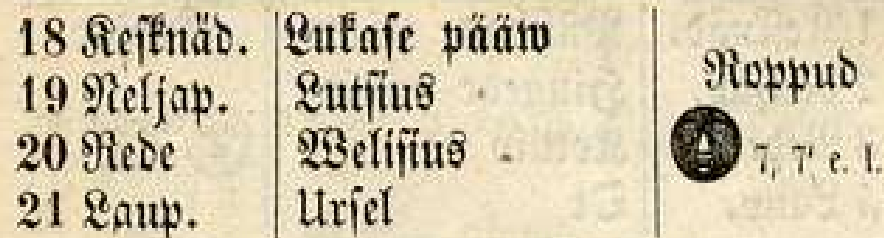 18 Kesknäd. Lukase pääw
19 Neljap. Lutsius Roppud
20 Rede Welisius 7, 7' e. l.
21 Laup. Ursel